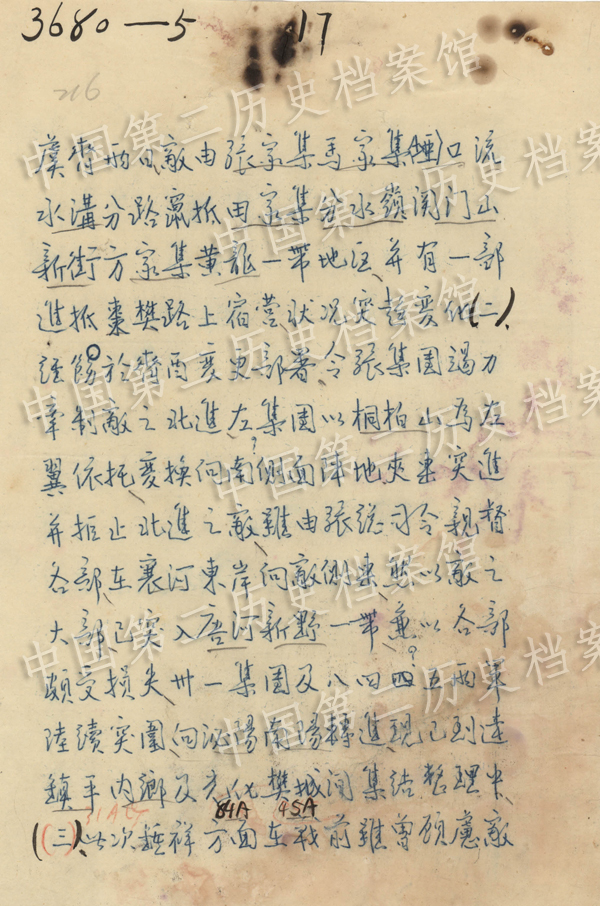 3680—5 17
216
虞齊兩日敵由張家集馬家集(埡)口流
水溝分路竄抵田家集分水嶺閔门山
新街方家集黄龍一帶地区并有一部
進抵棗樊路上宿营状况突起変化(二)
經飭於齊酉変更部署令張集團竭力
牽制敵之北進左集團以桐柏山為左
翼依托変換向南側面陣地夾東突進
并拒止北進之敵雖由張總司令親督
各部在襄河東岸向敵側東
以敵之
大部已突入唐河新野一帶兼以各部
頗受損失卅一集團及八四四五兩軍
陸續突圍向泌陽南陽轉進現已到達
鎮平内鄉及光化樊城间集结整理中
31AG 84A 45A
(三)此次鍾祥方面在戰前雖曾顧慮敵
中国第二历史档案馆